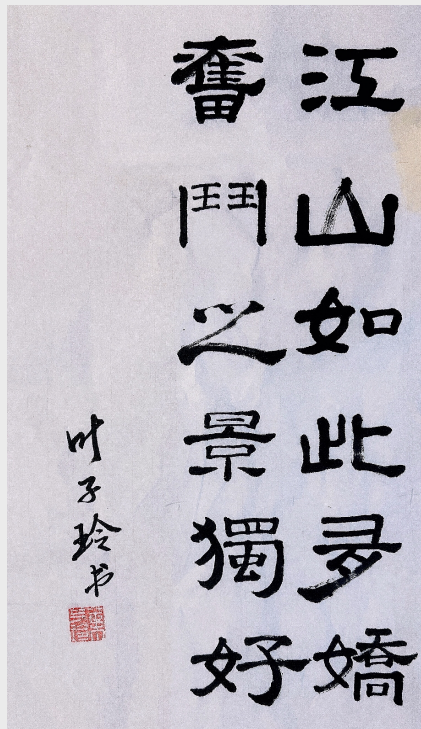 江山如此多嬌
奮鬥之景獨好
叶子玲书